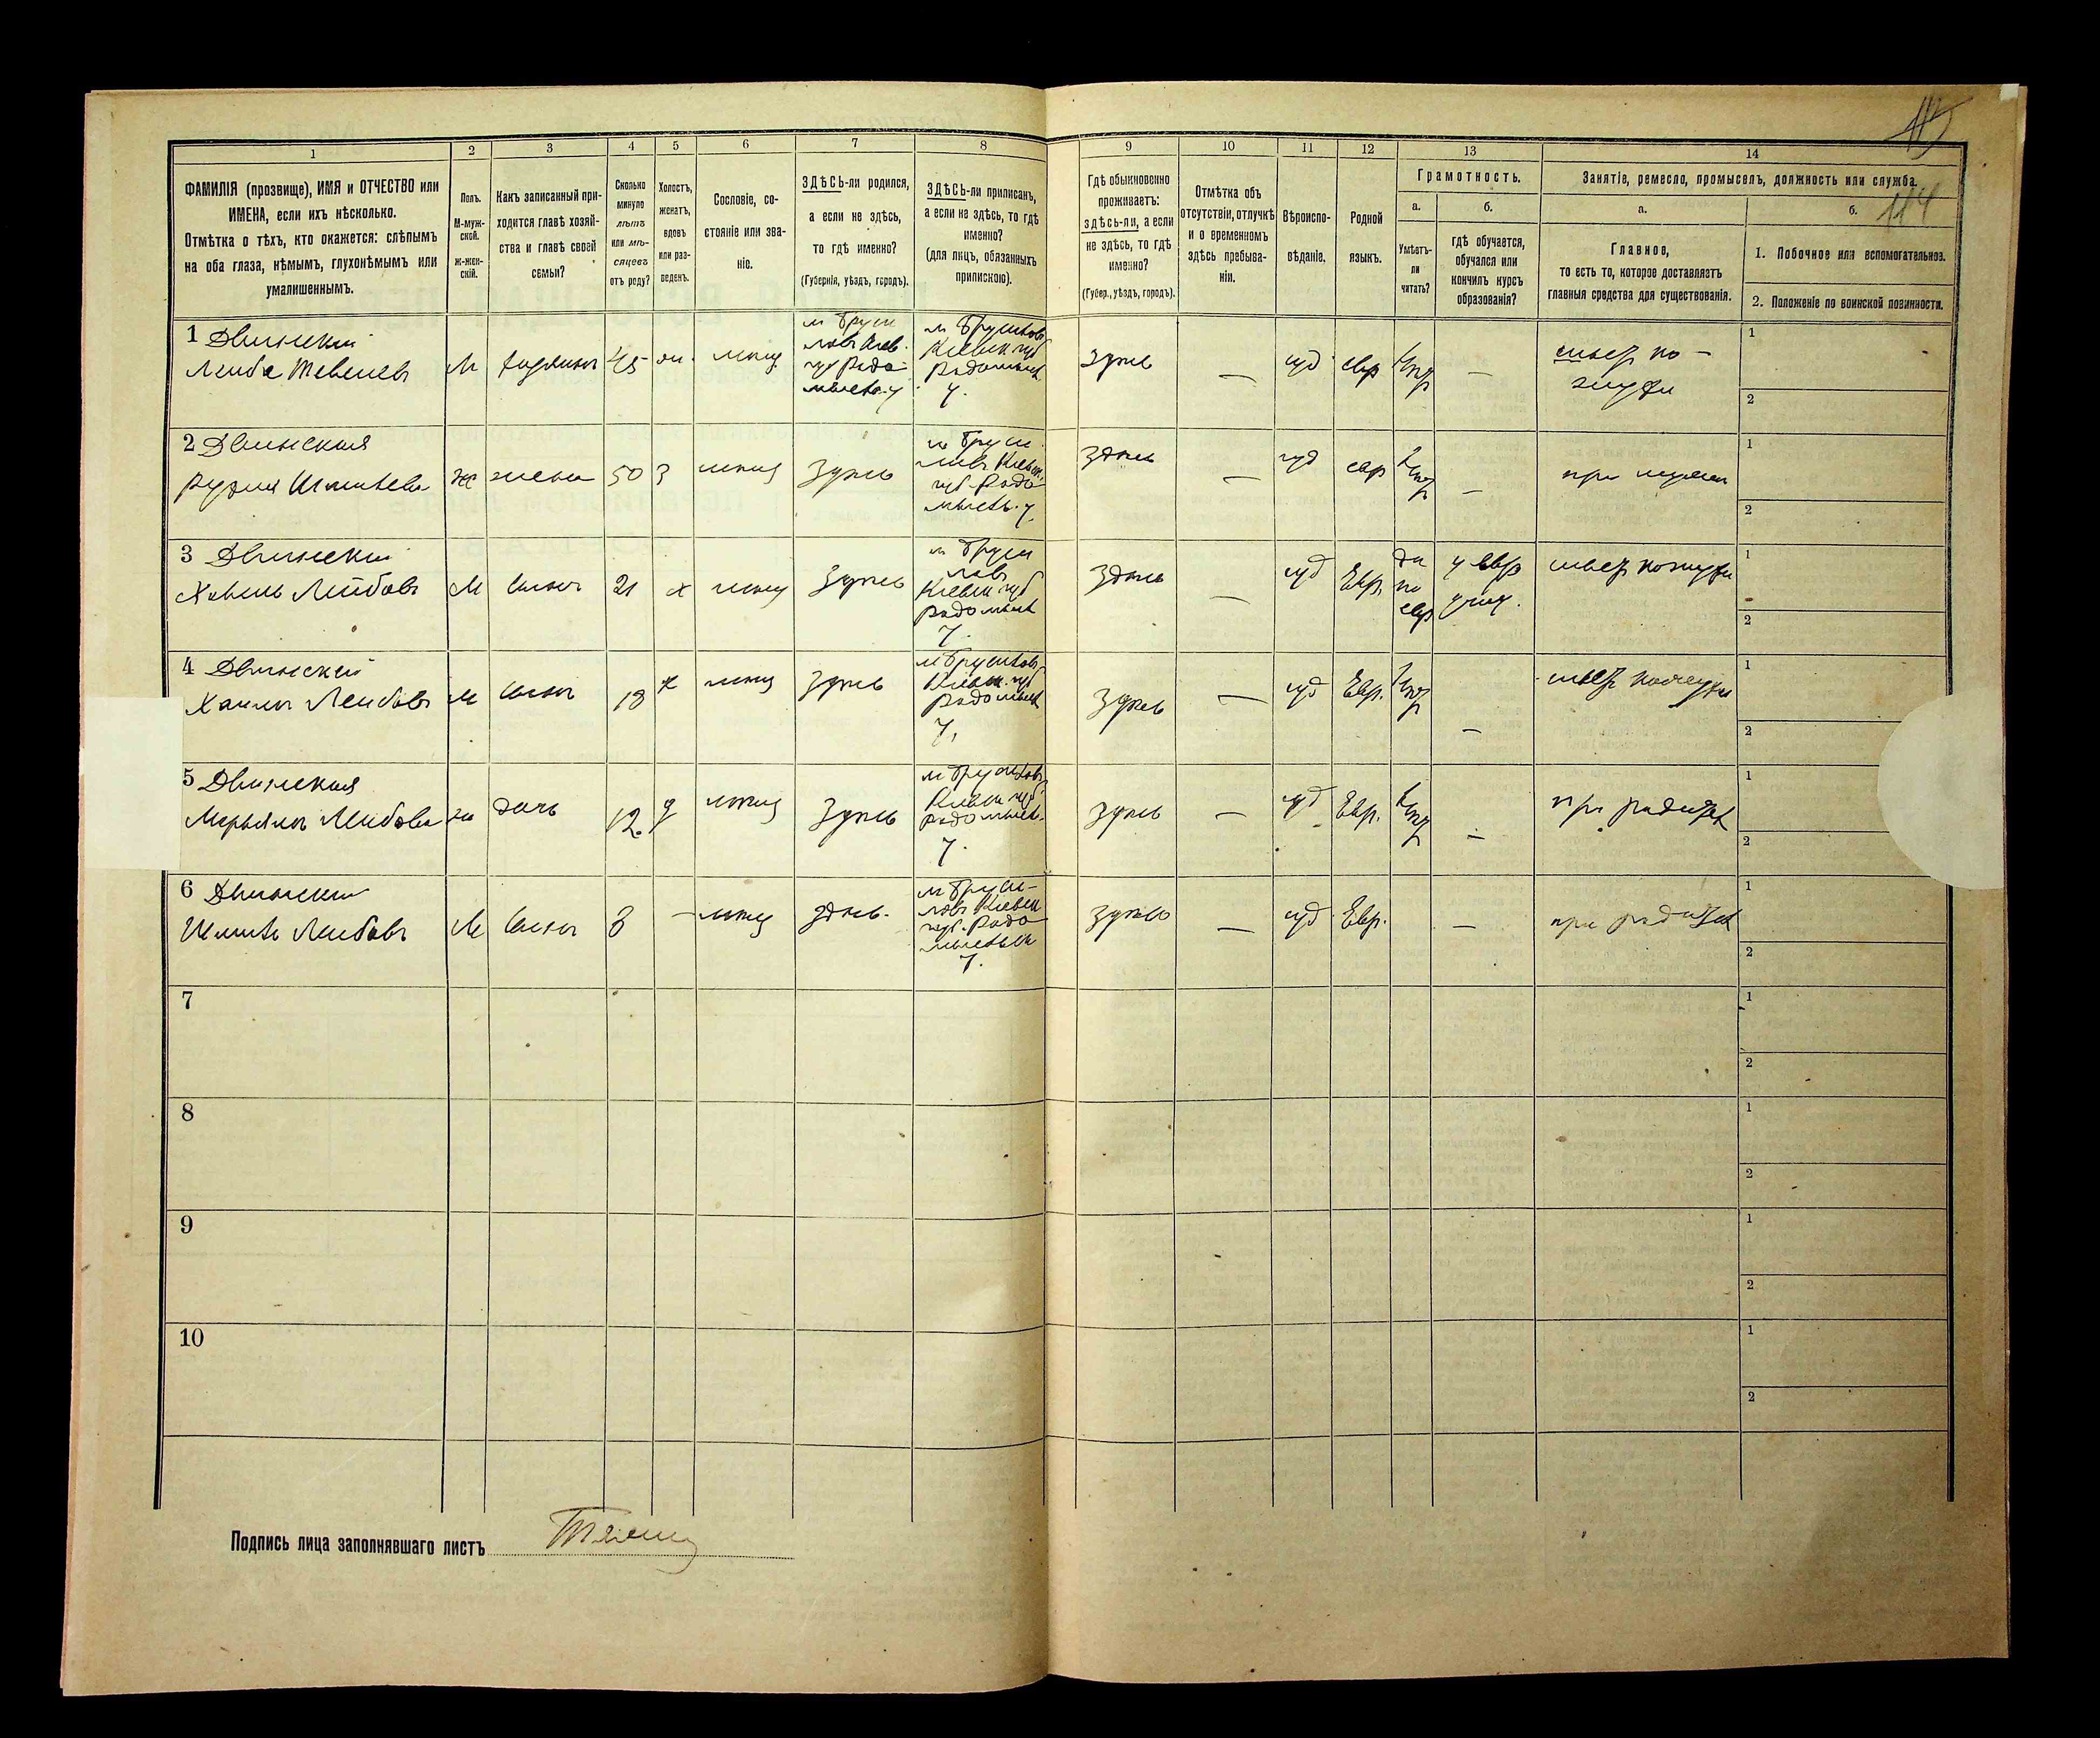 115
114
1
2
3
4
5
6
7
8
9
10
11
12
13
14
ФАМИЛІЯ (прозвище), ИМЯ и ОТЧЕСТВО или
ИМЕНА, если ихъ нѣсколько.
Отмѣтка о тѣхъ, кто окажется: слѣпымъ
на оба глаза, нѣмымъ, глухонѣмымъ или
умалишеннымъ.
Полъ.
М-муж-
ской.
Ж-жен-
скій.
Какъ записанный при-
ходится главѣ хозяй-
ства и главѣ своей
семьи?
Сколько
минуло
лѣтъ
или мѣ-
сяцевъ
отъ роду?
Холостъ,
женатъ,
вдовъ
или раз-
веденъ.
Сословіе, со-
стояніе или зва-
ніе.
ЗДѢСЬ-ли родился,
а если не здѣсь,
то гдѣ именно?
(Губернія, уѣздъ, городъ).
ЗДѢСЬ-ли приписанъ,
а если не здѣсь, то гдѣ
именно?
(для лицъ, обязанныхъ
припискою).
Гдѣ обыкновенно
проживаетъ:
здѣсь-ли, а если
не здѣсь, то гдѣ
именно?
(Губер., уѣздъ, городъ).
Отмѣтка объ
отсутствіи, отлучкѣ
и о временномъ
здѣсь пребыва-
ніи.
Вѣроиспо-
вѣданіе.
Родной
языкъ.
Грамотность.
а.
Умѣетъ-
ли
читать?
б.
гдѣ обучается,
обучался или
кончилъ курсъ
образованія?
Занятіе, ремесло, промыселъ, должность или служба.
а.
Главное,
то есть то, которое доставляетъ
главныя средства для существованія.
б.
1. Побочное или вспомогательное.
2. Положеніе по воинской повинности.
1 Двинскій
Лейба Тевелевъ
М
хозяинъ
45
жн.
мѣщ.
м Бруси
ловъ Кіев.
губ Радо
мысль. у
м Брусиловъ
Кіевск губ
Радомысл
у.
здѣсь
—
іуд
евр
—
1
2
2 Двинская
Ж
жена
50
З
мѣщ
здѣсь
м Бруси
ловъ Кіевск.
губ. Радо
мысль. у.
здѣсь
—
іуд
евр
—
при мужѣ
1
2
3 Двинскій
Лейбовъ
М
сынъ
21
х
мѣщ
здѣсь
м Бруси
ловъ
Кіевск губ
Радомысл
у.
здѣсь
—
іуд
Евр.
да
по
евр
у евр
учит.
1
2
4 Двинскій
Хаимъ Лейбовъ
М
сынъ
18
х
мѣщ
здѣсь
м Брусиловъ
Кіевск. губ
Радомысл
у.
здѣсь
—
іуд
Евр.
—
1
2
5 Двинская
Лейбова
ж
дочь
12.
д
мѣщ
здѣсь
м Брусиловъ
Кіевск губ
Радомысл.
у.
здѣсь
—
іуд
Евр.
—
при родител
1
2
6 Двинскій
Лейбовъ
М
сынъ
—
мѣщ
здѣсь.
м Бруси-
ловъ Кіевск
губ. Радо
мысльск
у.
здѣсь
—
іуд
Евр.
—
при родител
1
2
7
1
2
8
1
2
9
1
2
10
1
2
Подпись лица заполнявшаго листъ